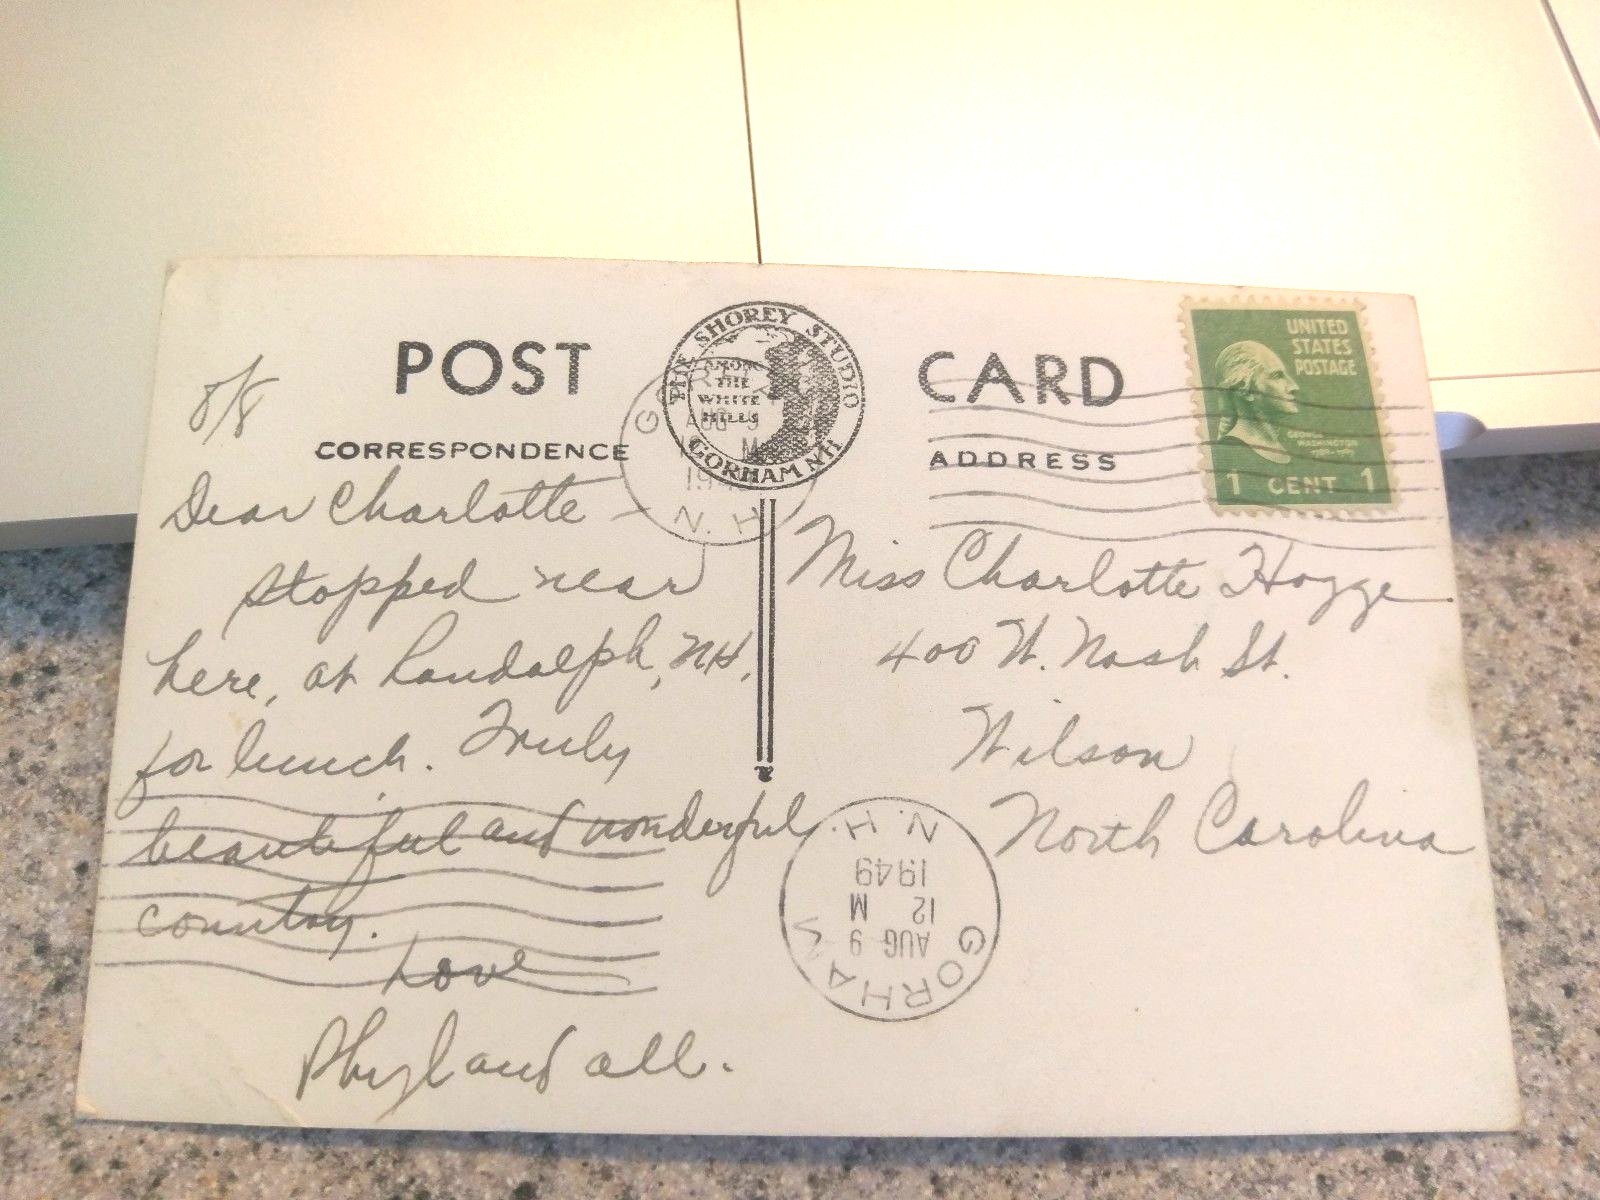 POST CARD
THE SHOREY STUDIO
AMONG
THE
WHITE
HILLS
GORHAM N H
CORRESPONDENCE
ADDRESS
UNITED
STATES
POSTAGE
GEORGE
WASHINGTON
1 CENT 1
GORHAM
AUG 9
M
N. H.
8/8
Dear Charlotte –
stopped near
here, at Randolph, NH,
for lunch. Truly
beautiful and wonderful
country.
Love
Phyl and all.
Miss Charlotte Hogge
400 W. Nash St.
Wilson
North Carolina
GORHAM
AUG 9
12 M
1949
N.H.